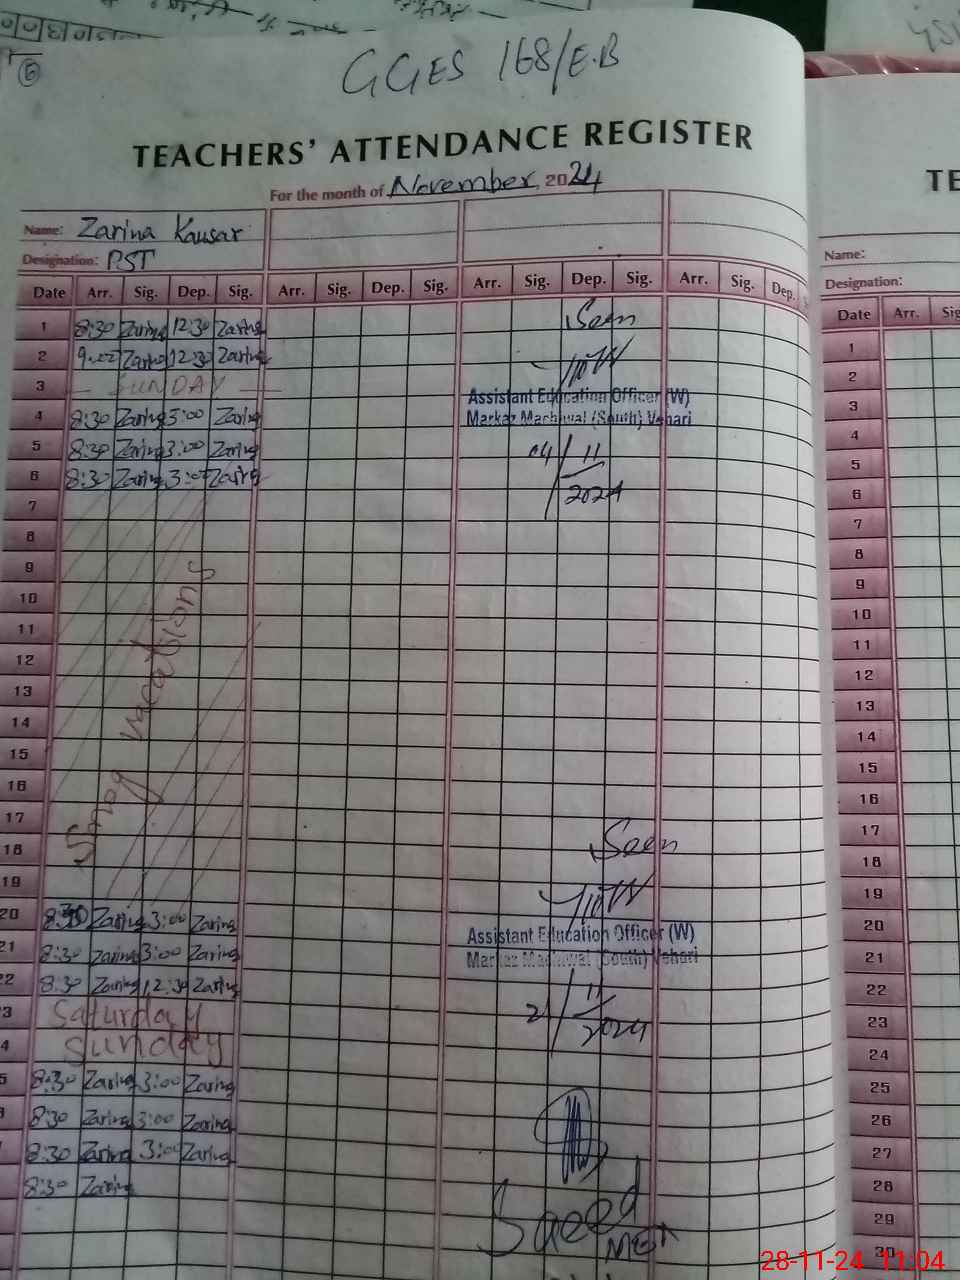 GGES 168/E.B
TEACHERS' ATTENDANCE REGISTER
For the month of November, 2024
Name: Zarina Kausar
Designation: PST
Date Arr. Sig. Dep. Sig. Arr. Sig. Dep. Sig. Arr. Sig. Dep. Sig. Arr. Sig. Dep.
1 8:30 Zarina 12:30 Zarina Seen
2 Zarina 12:30 Zarina
3 SUNDAY
Assistant Education Officer (W)
4 8:30 Zarina 3:00 Zarina
Markaz Machiwal (South) Vehari
5 8:30 Zarina 3:00 Zarina 04/11
6 8:30 Zarina 3:00 Zarina 2024
7
8
9
10
11
12
13
14
15
16
17
18
19
Smog vacations
Seen
20 8:30 Zarina 3:00 Zarina
Assistant Education Officer (W)
21 8:30 Zarina 3:00 Zarina
Markaz Machiwal (South) Vehari
22 8:30 Zarina 12:30 Zarina
21/11
2024
3 Saturday
4 Sunday
5 8:30 Zarina 3:00 Zarina
8:30 Zarina 3:00 Zarina
8:30 Zarina 3:00 Zarina
8:30 Zarina
Saeed
MEA
TE
Name:
Designation:
Date Arr. Sig
1
2
3
4
5
6
7
8
9
10
11
12
13
14
15
16
17
18
19
20
21
22
23
24
25
26
27
28
29
30
28-11-24 11:04